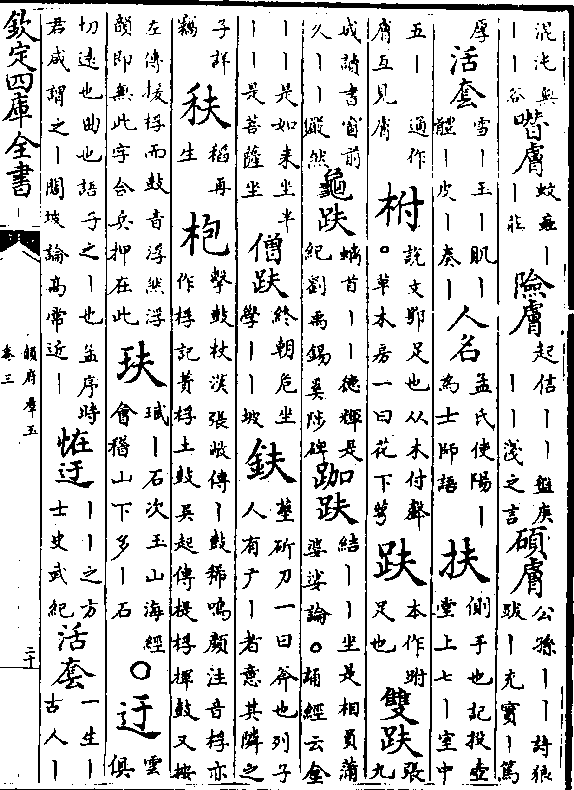 混沌與
｜｜谷
噆膚
蚊䖟｜
｜莊
險膚
起信｜｜盤庚
｜｜淺之言
碩膚
公孫｜｜詩狼
跋｜充實｜篤
厚
活套
雪｜玉｜肌｜
體｜皮｜奏｜
人名
孟氏使陽｜
為士師語
扶
側手也記投壺
堂上七｜室中
五｜通作
膚互見膚
柎
說文鄂足也从木付聲
。草木房一曰花下萼
趺
本作跗
足也
雙趺
張
九
成讀書窗前
久｜｜縱然
龜趺
螭首｜｜德輝是
紀劉禹錫奚陟碑
跏趺
結｜｜坐是相員蒲
婆娑論。誦經云全
｜｜是如来坐半
｜｜是菩薩坐
僧趺
終朝危坐
學｜｜坡
鈇
莝斫刀一曰斧也列子
人有亡｜者意其隣之
子詳
竊
秩
稻再
生
枹
擊鼓杖漢張敞傳｜鼓稀鳴顔注音桴亦
作桴記蕢桴土鼓吳起傳援桴揮鼓又按
左傳援桴而鼓音浮然浮
韻即無此字合兵押在此
玞
珷｜石次玉山海經
會稽山下多｜石
〇迂
雲
俱
切遠也曲也語子之｜也孟序時
君咸謂之｜闊坡論高常近｜
恠迂
｜｜之方
士史武紀
活套
一生｜
古人｜
欽定四庫全書
韻府羣玉
卷三
三十